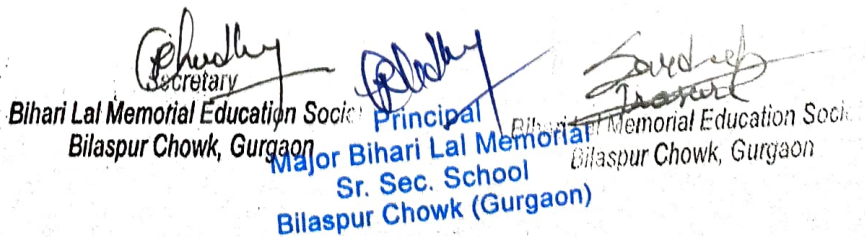 Secretary
Bihari Lal Memorial Education Socie
Bilaspur Chowk, Gurgaon
Principal
Major Bihari Lal Memorial
Sr. Sec. School
Bilaspur Chowk (Gurgaon)
Sandeep
Memorial Education Soci
Bilaspur Chowk, Gurgaon